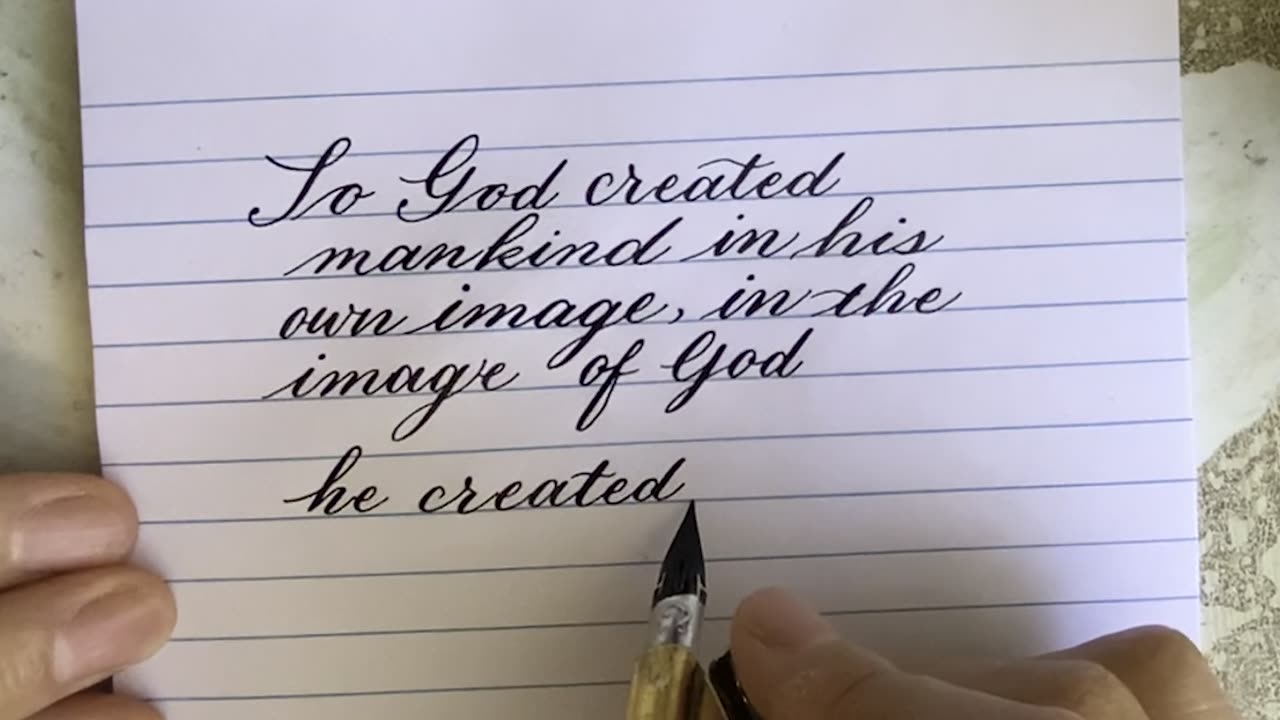 So God created
mankind in his
own image, in the
image of God
he created